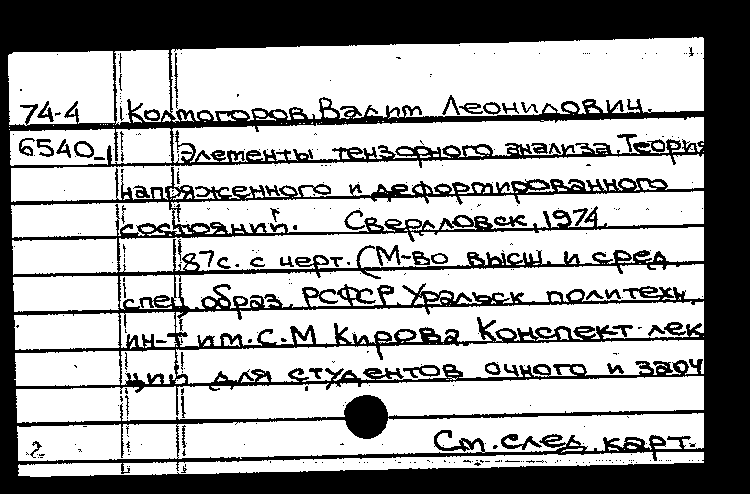 74-4 Колмогоров, Вадим Леонидович.
6540-1 Элементы тензорного анализа. Теория
напряженного и деформированного
состояний. Свердловск, 1974.
87с. с черт. (М-во высш. и сред.
спец. образ. РСФСР. Уральск. политехн.
ин-т им. С.М Кирова. Конспект лек
ций для студентов очного и заоч
2 См. след. карт.